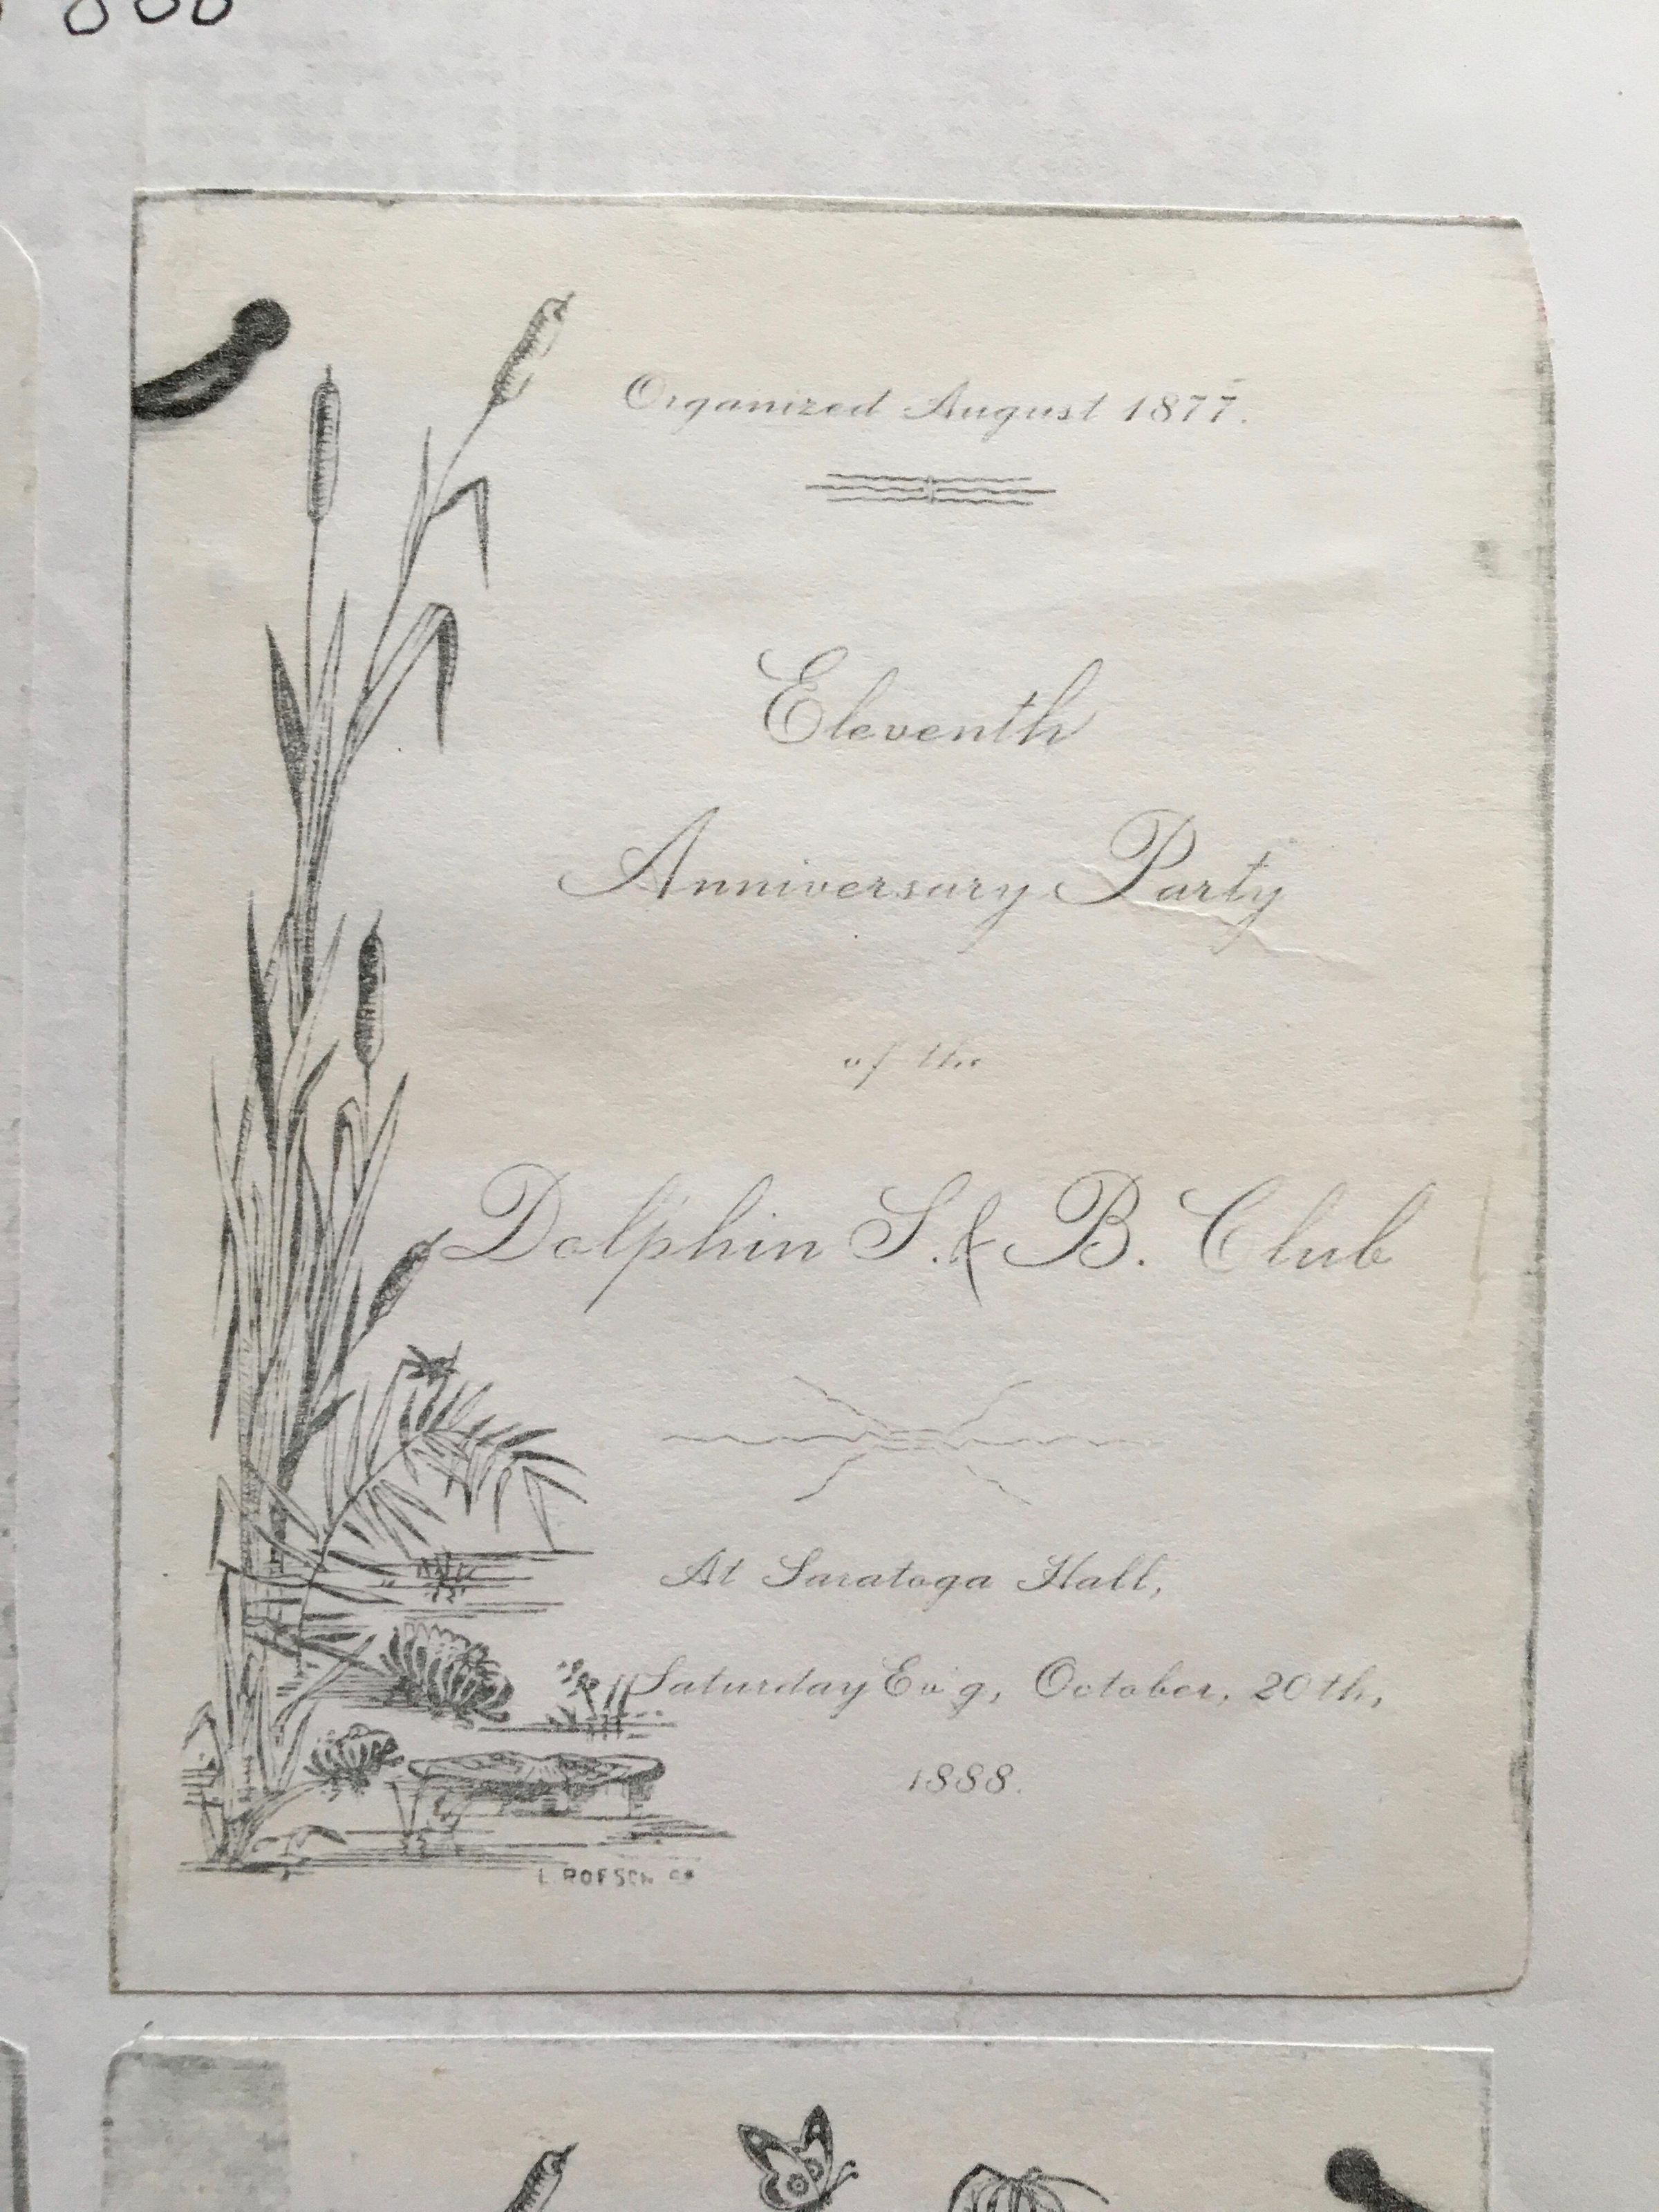 888
Organized August 1877.
Eleventh
Anniversary Party
of the
Dolphin S. & B. Club
At Saratoga Hall,
Saturday Ev'g, October, 20th,
1888.